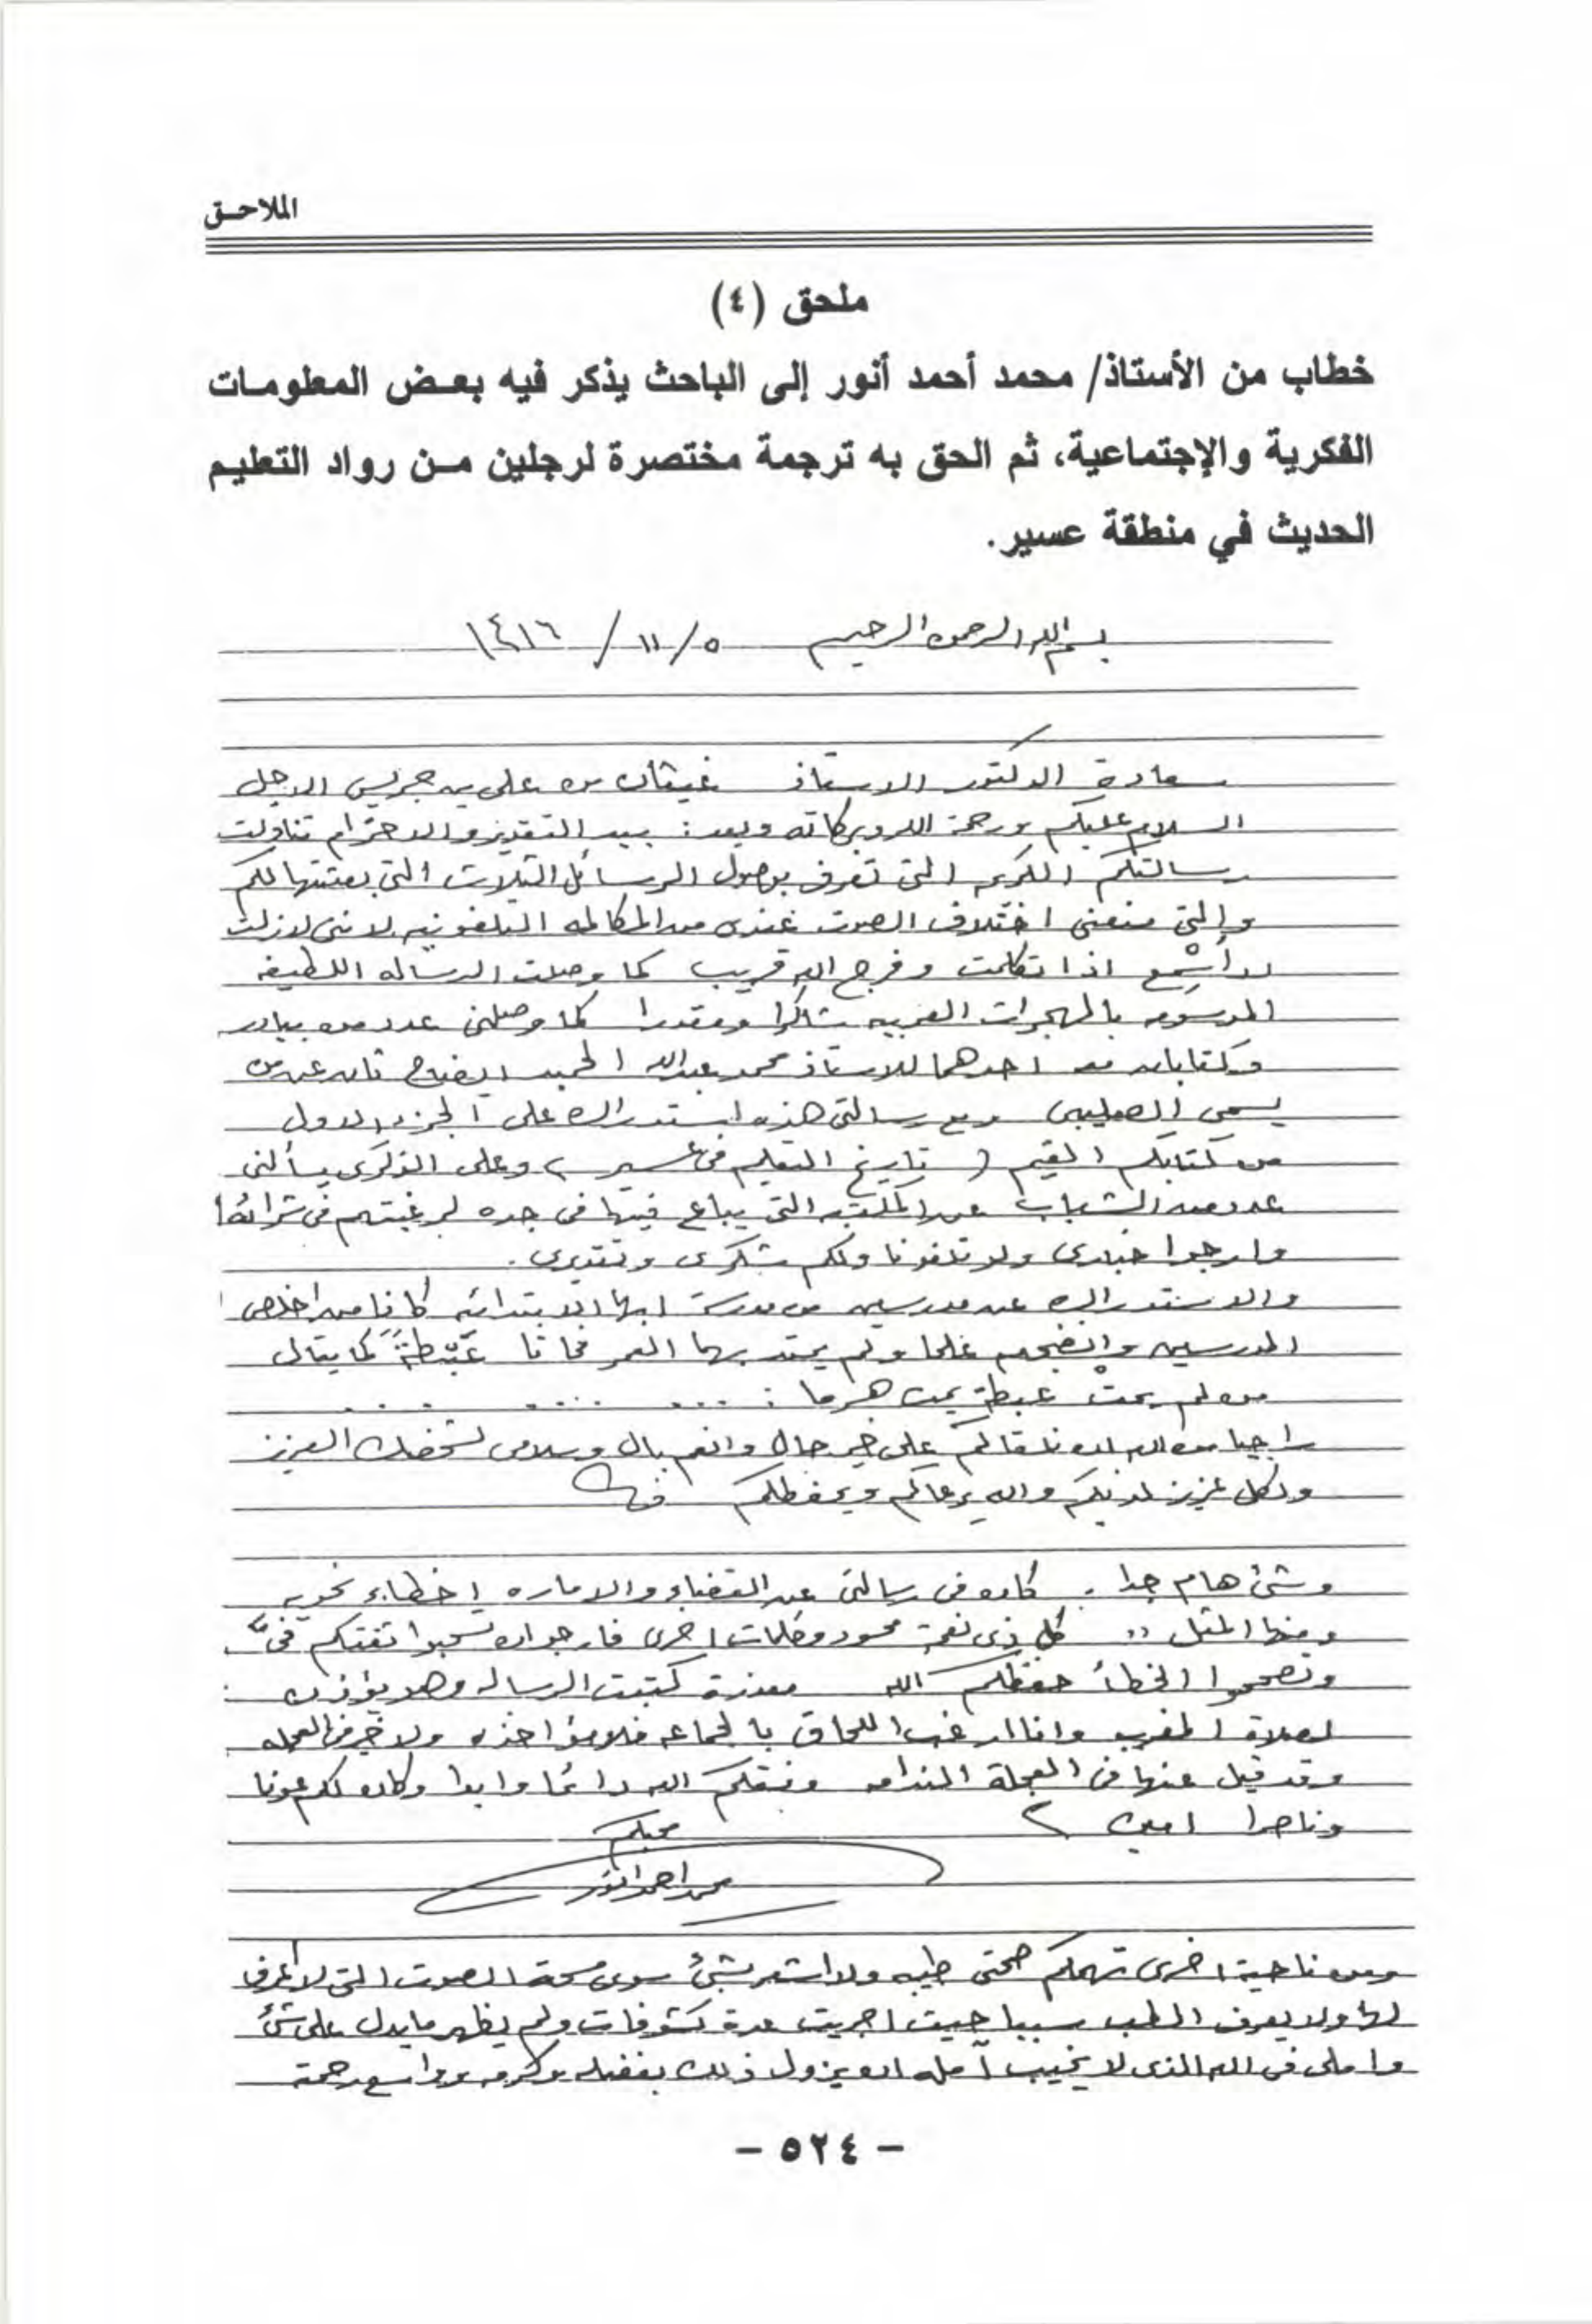 الملاحـق
ملحق (٤)
خطاب من الأستاذ/ محمد أحمد أنور إلى الباحث يذكر فيه بعـض المعلومـات
الفكرية والإجتماعية، ثم الحق به ترجمة مختصرة لرجلين مـن رواد التعليم
الحديث في منطقة عسير.
بسم الله الرحمن الرحيم ٥/ ١١/ ١٤١٦
سعادة الدكتور الاستاذ غيثان بن على بن جريس الاجل
السلام عليكم ورحمة الله وبركاته وبعد: بيد التقدير والاحترام تناولت
رسالتكم الكريم التى تعرف بوصول الرسائل الثلاث التى بعثتها لكم
والتى منعنى اختلاف الصوت عندى من المكالمه التلفونيه لاننى لازلت
لا أسْمع اذا تكلمت وفرج الله قريب كما وصلت الرساله اللطيفه
الموسومه بالهجرات العربيه شاكرا ومقدرا كما وصلنى عدد من بيادر
وكتابان احدهما للاستاذ محمد عبدالله الحميد
يسمى ومع رسالتى هذه استدراك على الجزء الاول
من كتابكم القيم ( تاريخ التعليم فى عسير ) وعلى الذكرى يسألنى
عدد من الشباب عن المكتبه التى يباع فيها فى جده لرغبتهم فى شرائه!
وارجوا ولو تلفونا ولكم شكرى وتقديرى .
والاستدراك عن مدرسين من مدرسة ابها الابتدائيه كانا من اخلص
المدرسين علما ولم يمتد بهما العمر فماتا عَبْطةً كما يقال
من لم يمتْ عبطة يمت هرما : ... .... . . .
راجيا من الله ان نلقاكم على خير حال وانعم بال وسلامى لشخصك العزيز
ولكل عزيز لديكم والله يرعاكم ويحفظكم
وشئ هام جدا . كان فى رسالتى عن القضاء والاماره اخطاء نحويه
ومنها المثل ,, كل ذى نعمة محسود وكلمات اخرى فارجو ان
وتصححوا الخطأ حفظكم الله معذرة كتبت الرساله وهو يؤذن
لصلاة المغرب وانا ارغب اللحاق بالجماعه فلا مؤاخذه ولا خير فى العجله
وقد قيل عنها فى العجلة الندامه وفقكم الله دائما وابدا وكان لكم عونا
وناصرا امين
محبكم
محمد احمد انور
ومن ناحية اخرى تهمكم صحتى طيبه ولا اشعر بشئ سوى بحة الصوت التى لا اعرف
لها ولا يعرف الطب سببا حيث اجريت عدة كشوفات ولم يظهر ما يدل على شئ
واملى فى الله الذى لا يخيب آمله ان يزول ذلك بفضله وكرمه وواسع رحمته
- ٥٢٤ -